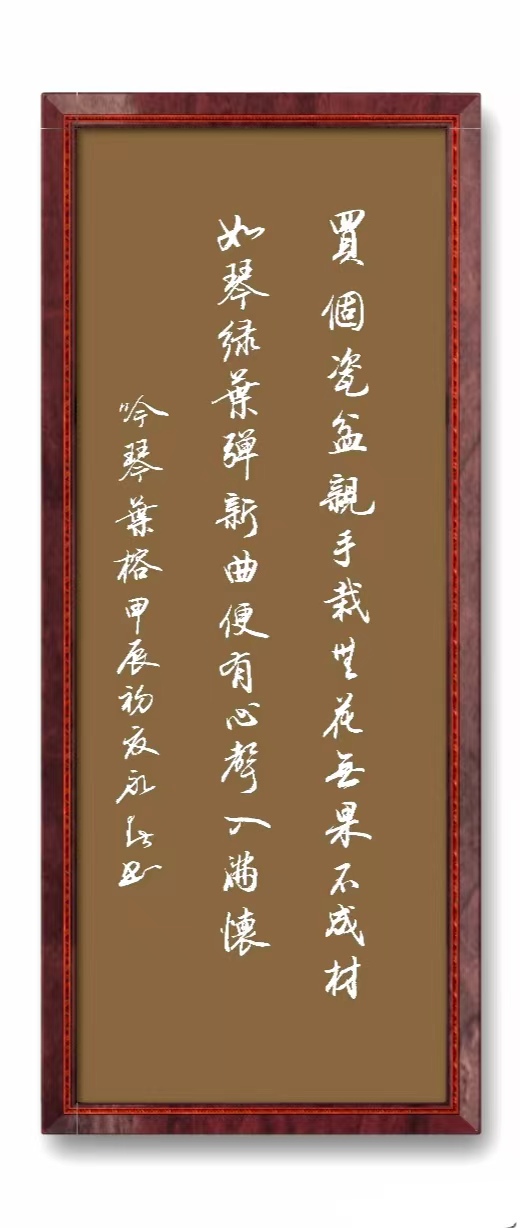 買個瓷盆親手栽無花無果不成材
如琴绿葉彈新曲便有心聲入滿懷
吟琴葉榕甲辰初夏永杰书